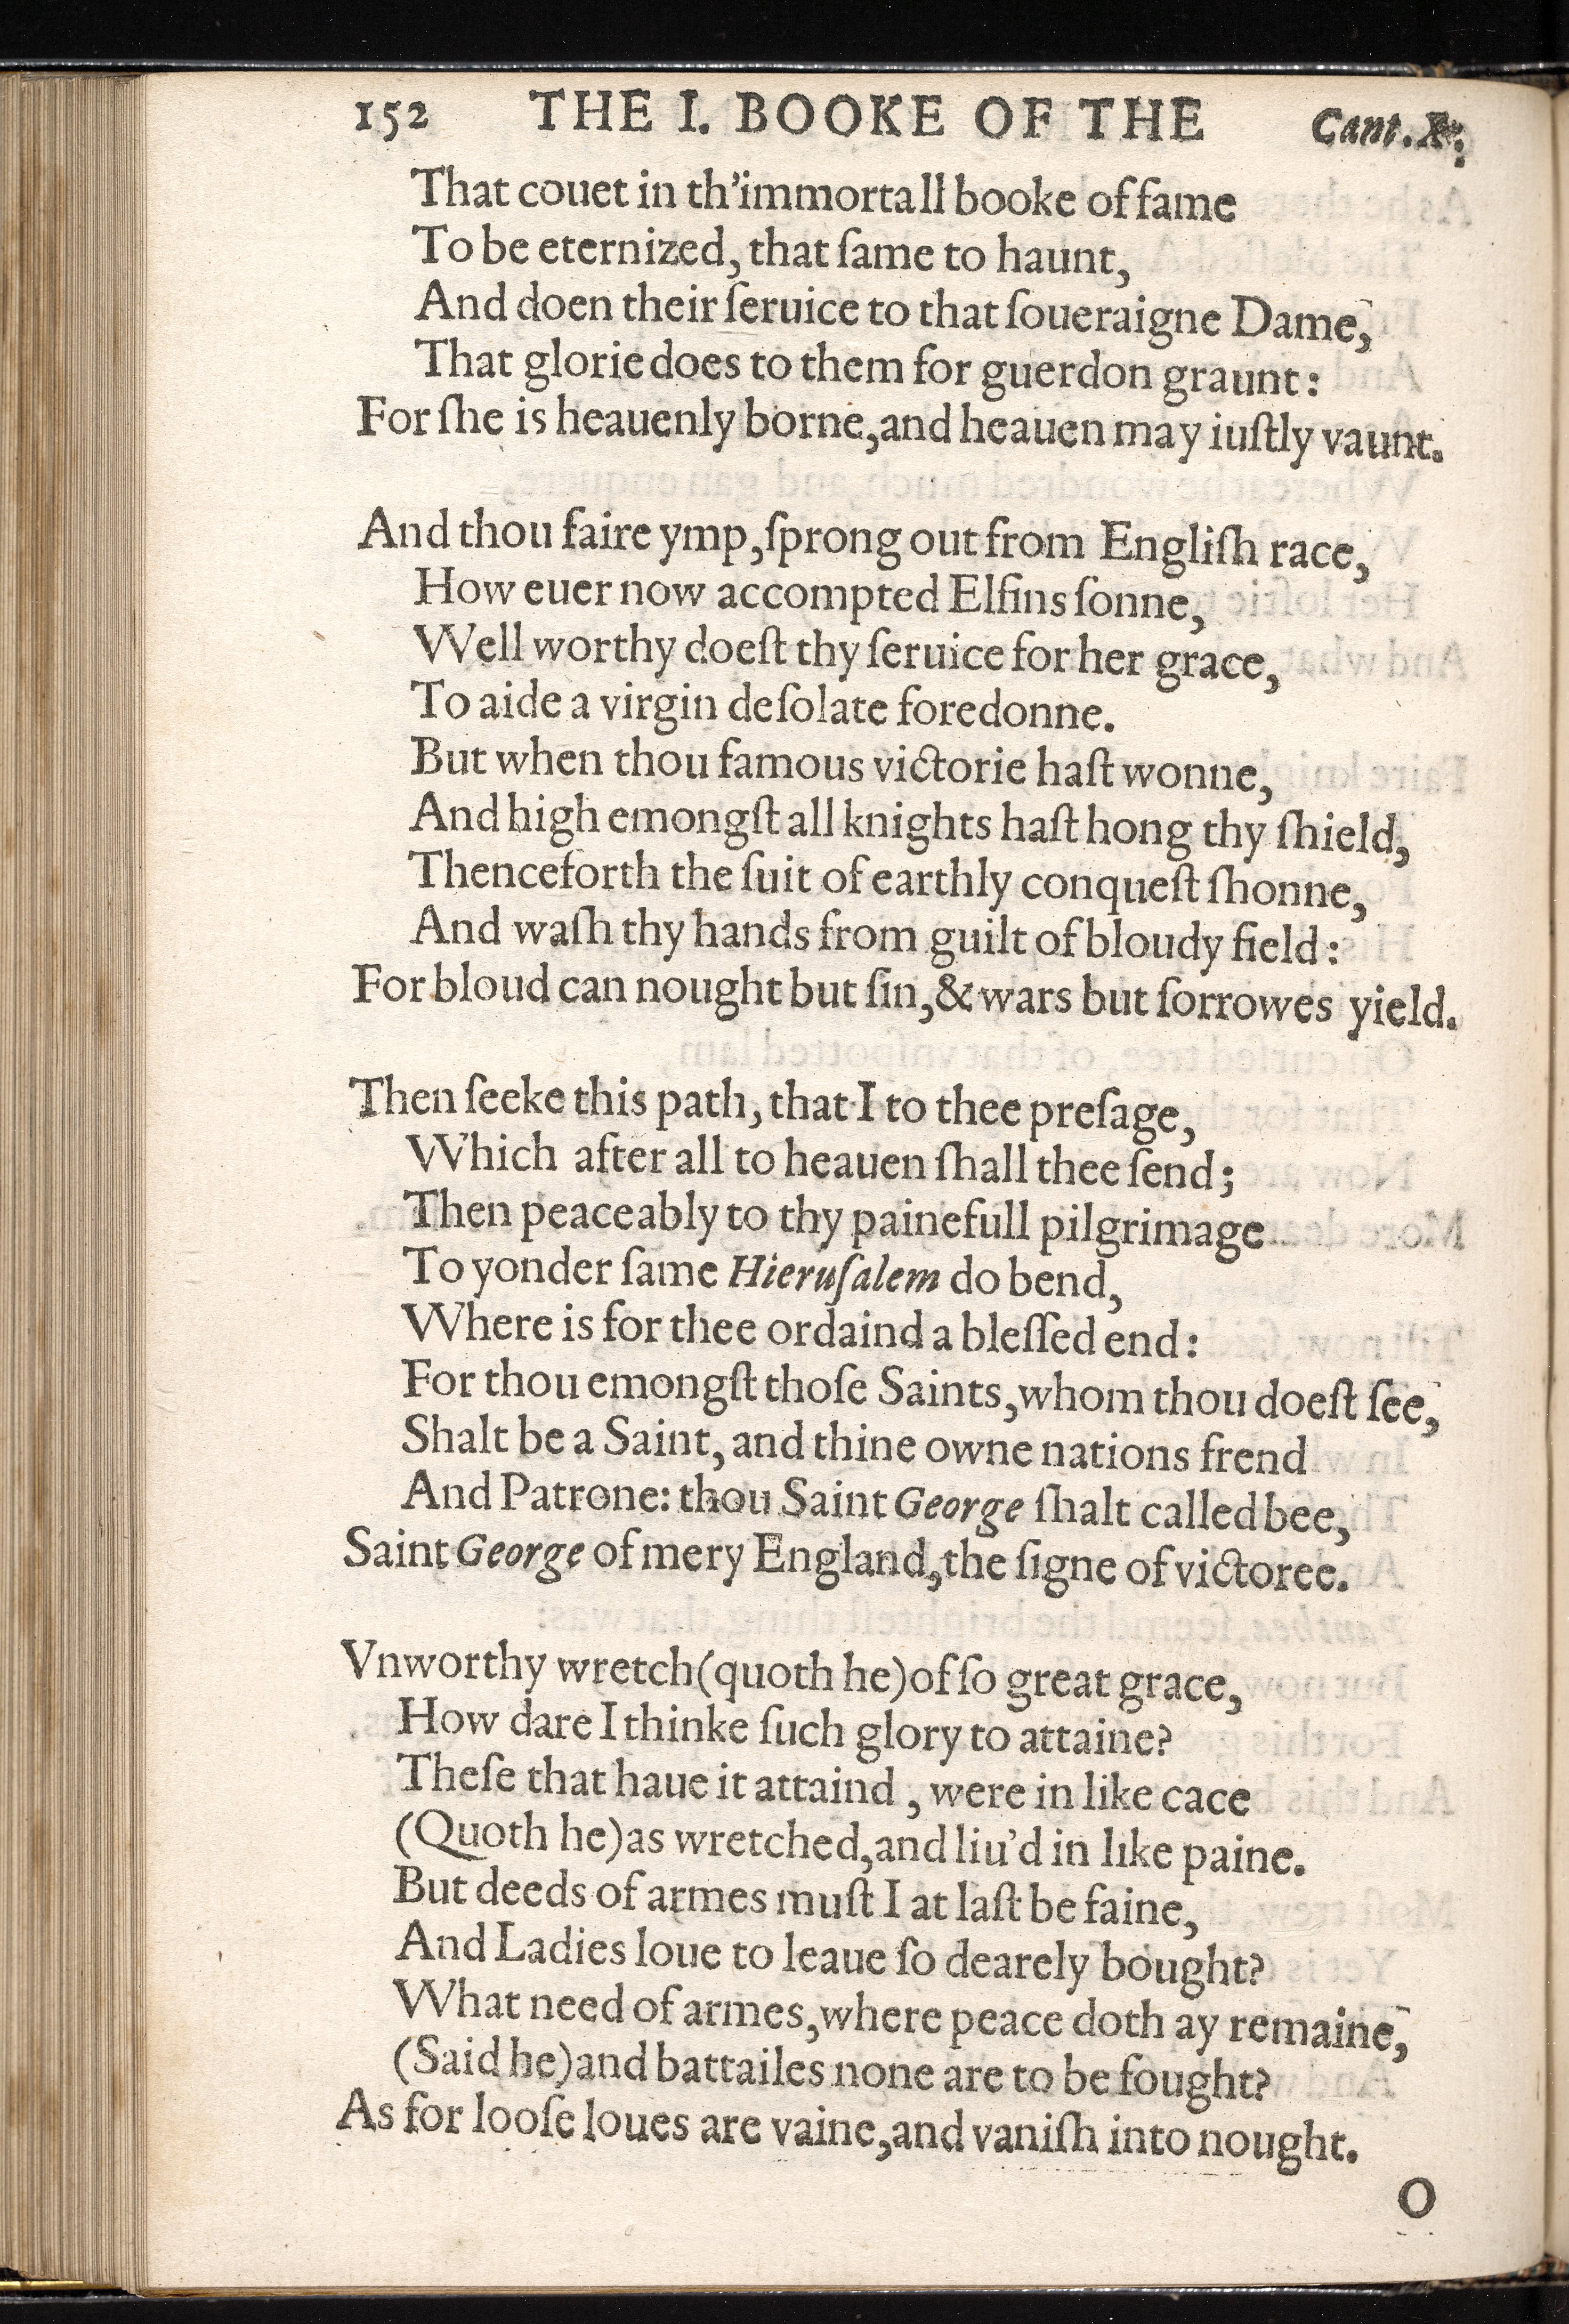 152 THE I. BOOKE OF THE Cant. X.
That couet in th'immortall booke of fame
To be eternized, that ſame to haunt,
And doen their ſeruice to that ſoueraigne Dame,
That glorie does to them for guerdon graunt:
For ſhe is heauenly borne, and heauen may iuſtly vaunt.
And thou faire ymp, ſprong out from Engliſh race,
How euer now accompted Elfins ſonne,
Well worthy doeſt thy ſeruice for her grace,
To aide a virgin deſolate foredonne.
But when thou famous victorie haſt wonne,
And high emongſt all knights haſt hong thy ſhield,
Thenceforth the ſuit of earthly conqueſt ſhonne,
And waſh thy hands from guilt of bloudy field:
For bloud can nought but ſin, & wars but ſorrowes yield.
Then ſeeke this path, that I to thee preſage,
Which after all to heauen ſhall thee ſend;
Then peaceably to thy painefull pilgrimage
To yonder ſame Hieruſalem do bend,
Where is for thee ordaind a bleſſed end:
For thou emongſt thoſe Saints, whom thou doeſt ſee,
Shalt be a Saint, and thine owne nations frend
And Patrone: thou Saint George ſhalt called bee,
Saint George of mery England, the ſigne of victoree.
Vnworthy wretch (quoth he) of ſo great grace,
How dare I thinke ſuch glory to attaine?
Theſe that haue it attaind, were in like cace
(Quoth he) as wretched, and liu'd in like paine.
But deeds of armes muſt I at laſt be faine,
And Ladies loue to leaue ſo dearely bought?
What need of armes, where peace doth ay remaine,
(Said he) and battailes none are to be fought?
As for looſe loues are vaine, and vaniſh into nought.
O